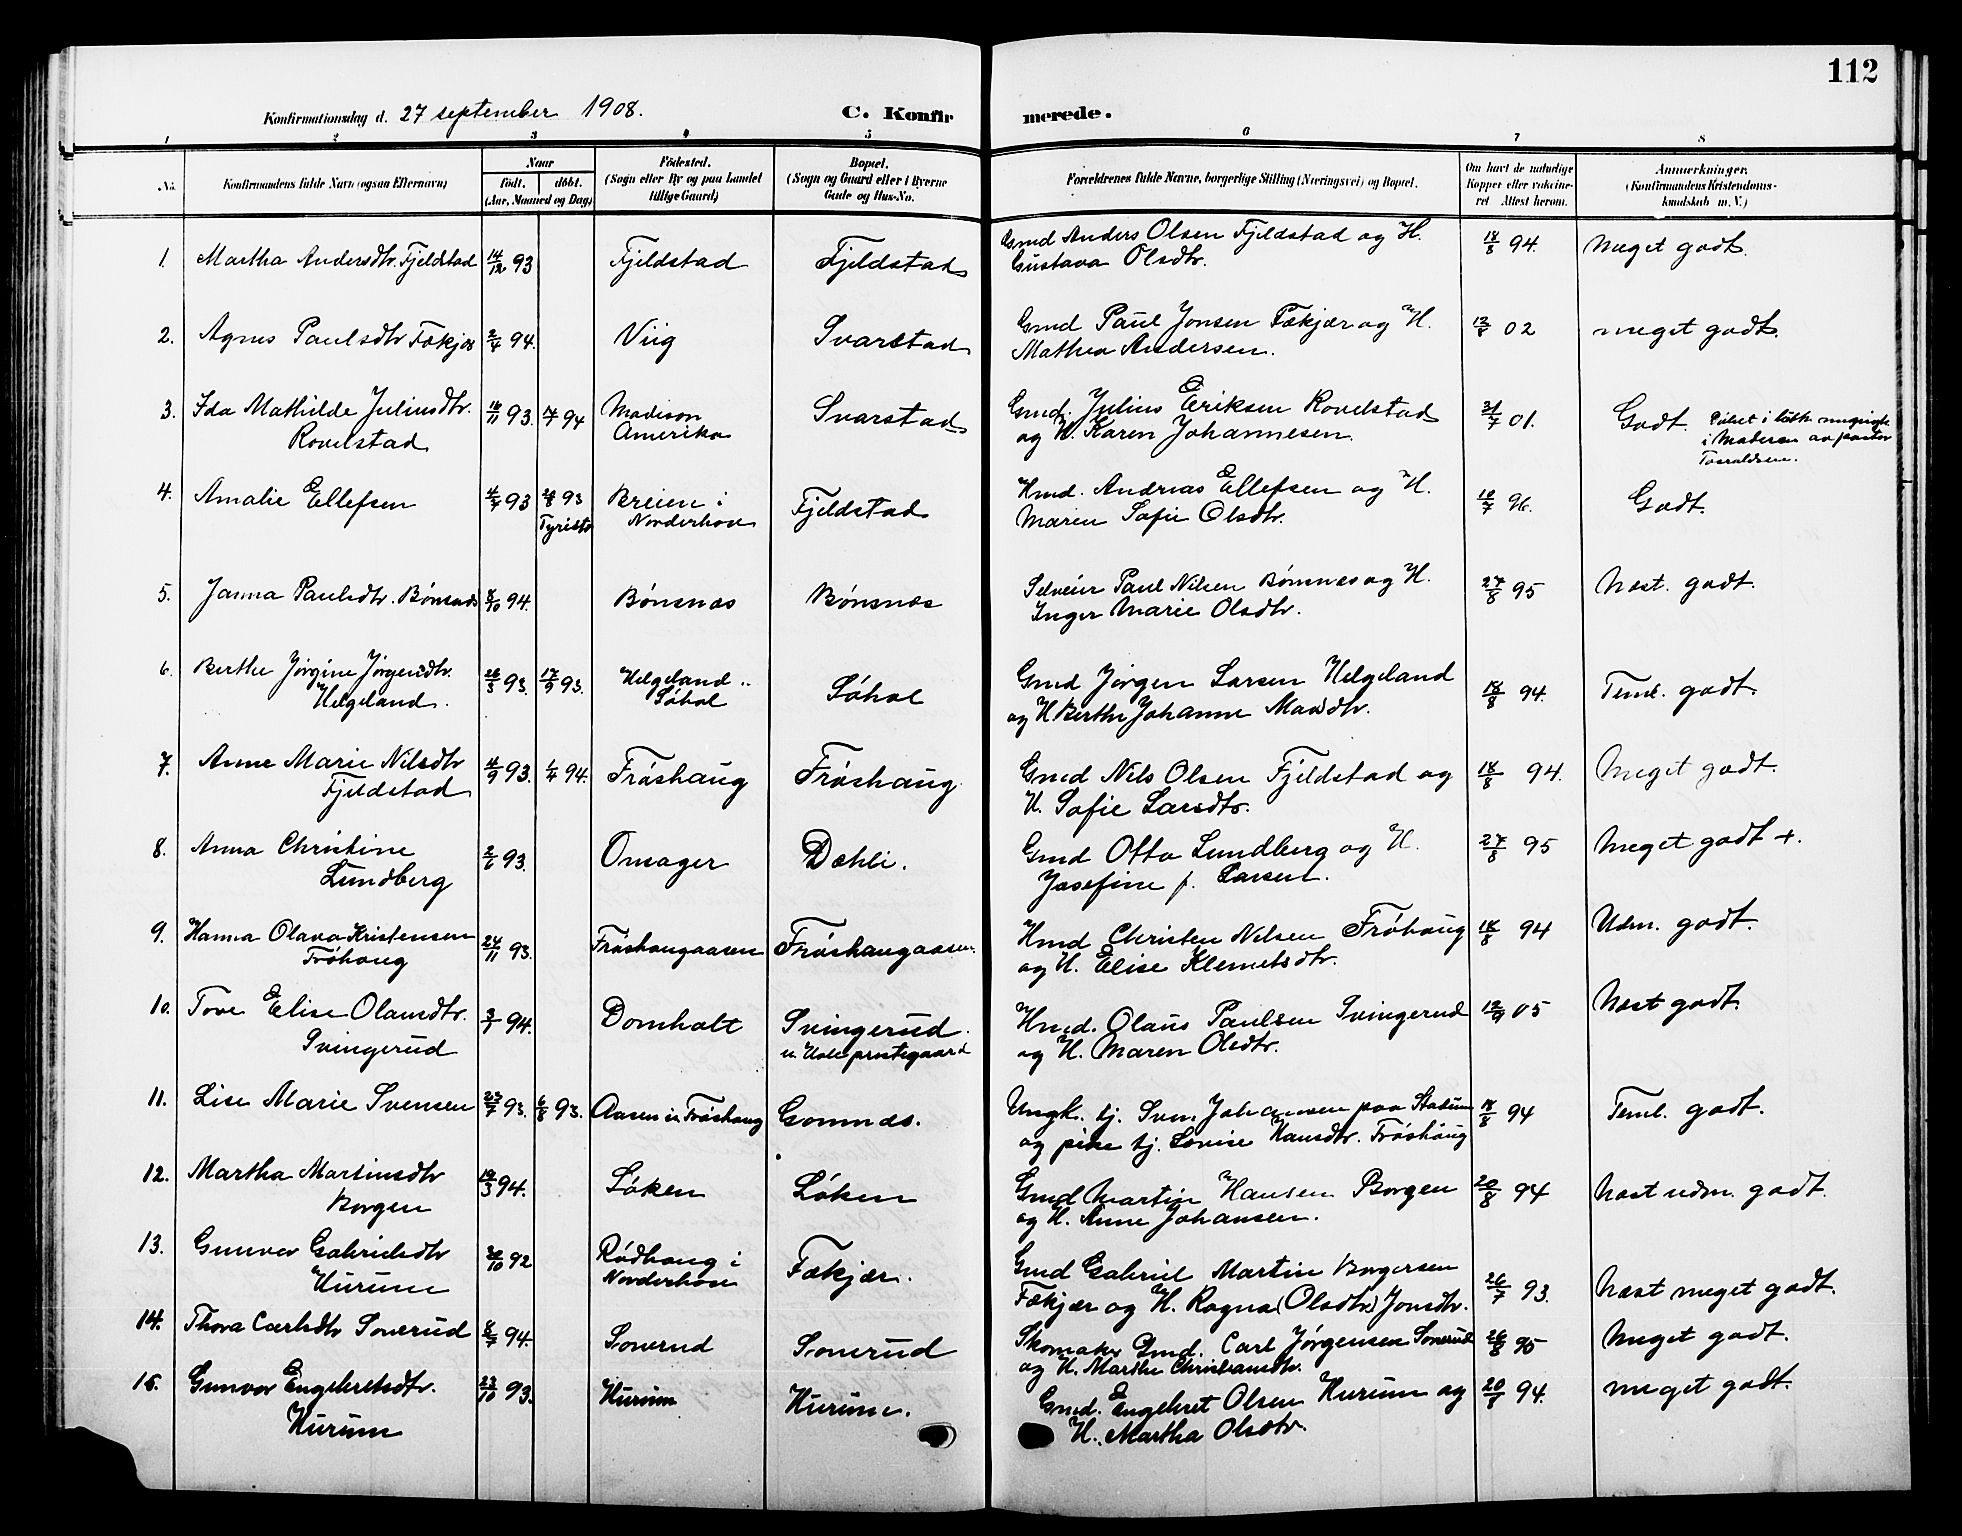 112
Konfirmationsdag d. 27 september 1908. C. Konfirmerede.
1 2 3 4 5 6 7 8
No. Konfirmandens fulde Navn (ogsaa Efternavn) Naar født. døbt. (Aar, Maaned og Dag) Födested. (Sogn eller By og paa Landet tillige Gaard) Bopæl. (Sogn og Gaard eller i Byerne Gade og Hus-No. Forældrenes fulde Navne, borgerlige Stilling (Næringsvei) og Bopæl. Om havt de naturlige Kopper eller vakcineret Attest herom. Anmerkninger. (Konfirmandens Kristendomskundskab m. V.)
1. Martha Andersdtr. Fjeldstad 14/12 93 Fjeldstad Fjeldstad Gmd Anders Olsen Fjeldstad og H. 18/8 94. Meget godt.
Gustava Olsdtr.
2. Agnes Paulsdtr Fækjær 2/4 94. Viig Svarstad Gmd Paul Jonsen Fækjær og H. 02 meget godt.
Mathea Andersen.
3. Ida Mathilde Juliusdtr. 16/11 93. 94 Madison Svarstad Gmd. Julius Eriksen Rovelstad 01. Godt.
Rovelstad Amerika og H. Karen Johannesen. i av pastor
4. Amalie Ellefsen 93 93 Breien i Fjeldstad Hmd. Andreas Ellefsen og H. 96. Godt.
Norderhov Maren Sofie Olsdtr.
5. Janna Paulsdtr. Bönsnæs 8/10 94. Bönsnæs Bönsnæs Selveier Paul Nilsen Bönsnæs og H. 27/8 95 Næst. godt.
Inger Marie Olsdtr.
6. Berthe Jörgine Jörgensdtr. 26/3 93. 17/9 93. Helgeland Söhol Gmd Jörgen Larsen Helgeland 18/8 94. Teml. godt.
Helgeland. Söhol og H Berthe Johanne
7. Anne Marie Nilsdtr 93. 1/4 94. Fröshaug Fröshaug Gmd Nils Olsen Fjeldstad og 18/8 94. Meget godt.
Fjeldstad H. Sofie Larsdtr.
8. Anna Christine 2/6 93. Onsager Dæhli. Gmd Otto Lundberg og H. 27/8 95 Meget godt +.
Lundberg Josefine f. Larsen.
9. Hanna Olava Kristensen 24/11 93. Fröshaugaasen Fröshaugaasen. Hmd Christen Nilsen Fröhaug 18/8 94 Udm. godt.
Fröhaug og H. Elise Klemetsdtr.
10. Tove Elise Olausdtr. 94. Domholt Svingerud Hmd. Olaus Paulsen Svingerud 12/9 05 Næst godt.
Svingerud u. Hole prestegaard og H. Maren Olsdtr.
11. Lise Marie Svensen 23/7 93. 6/8 93. Aasen u. Fröshaug Gomnæs. Ungk. tj. Sven Johansen paa 18/8 94 Teml. godt.
og pike tj. Lovise Hansdtr. Fröshaug
12. Martha Martinsdtr 19/3 94. Löken Löken Gmd Martin Hansen Borgen 20/8 94 Næst udm. godt.
Borgen og H. Anne Johansen.
13. Gunvor Gabrielsdtr 92 Rödhaug i Fækjær. Gmd Gabriel Martin Borgersen 26/7 93. Næst meget godt.
Hurum Norderhov Fækjær og H. Ragna (Olsdtr.) Jonsdtr.
14. Thora Carlsdtr Sonerud 94. Sonerud Sonerud Skomaker Gmd. Carl Jörgensen Sonerud 26/8 95 Meget godt.
og H. Marthe Christiansdtr.
15. Gunvor Engebretsdtr. 23/10 93. Hurum Hurum. Gmd. Engebret Olsen Hurum og 94. meget godt.
Hurum H. Martha Olsdtr.